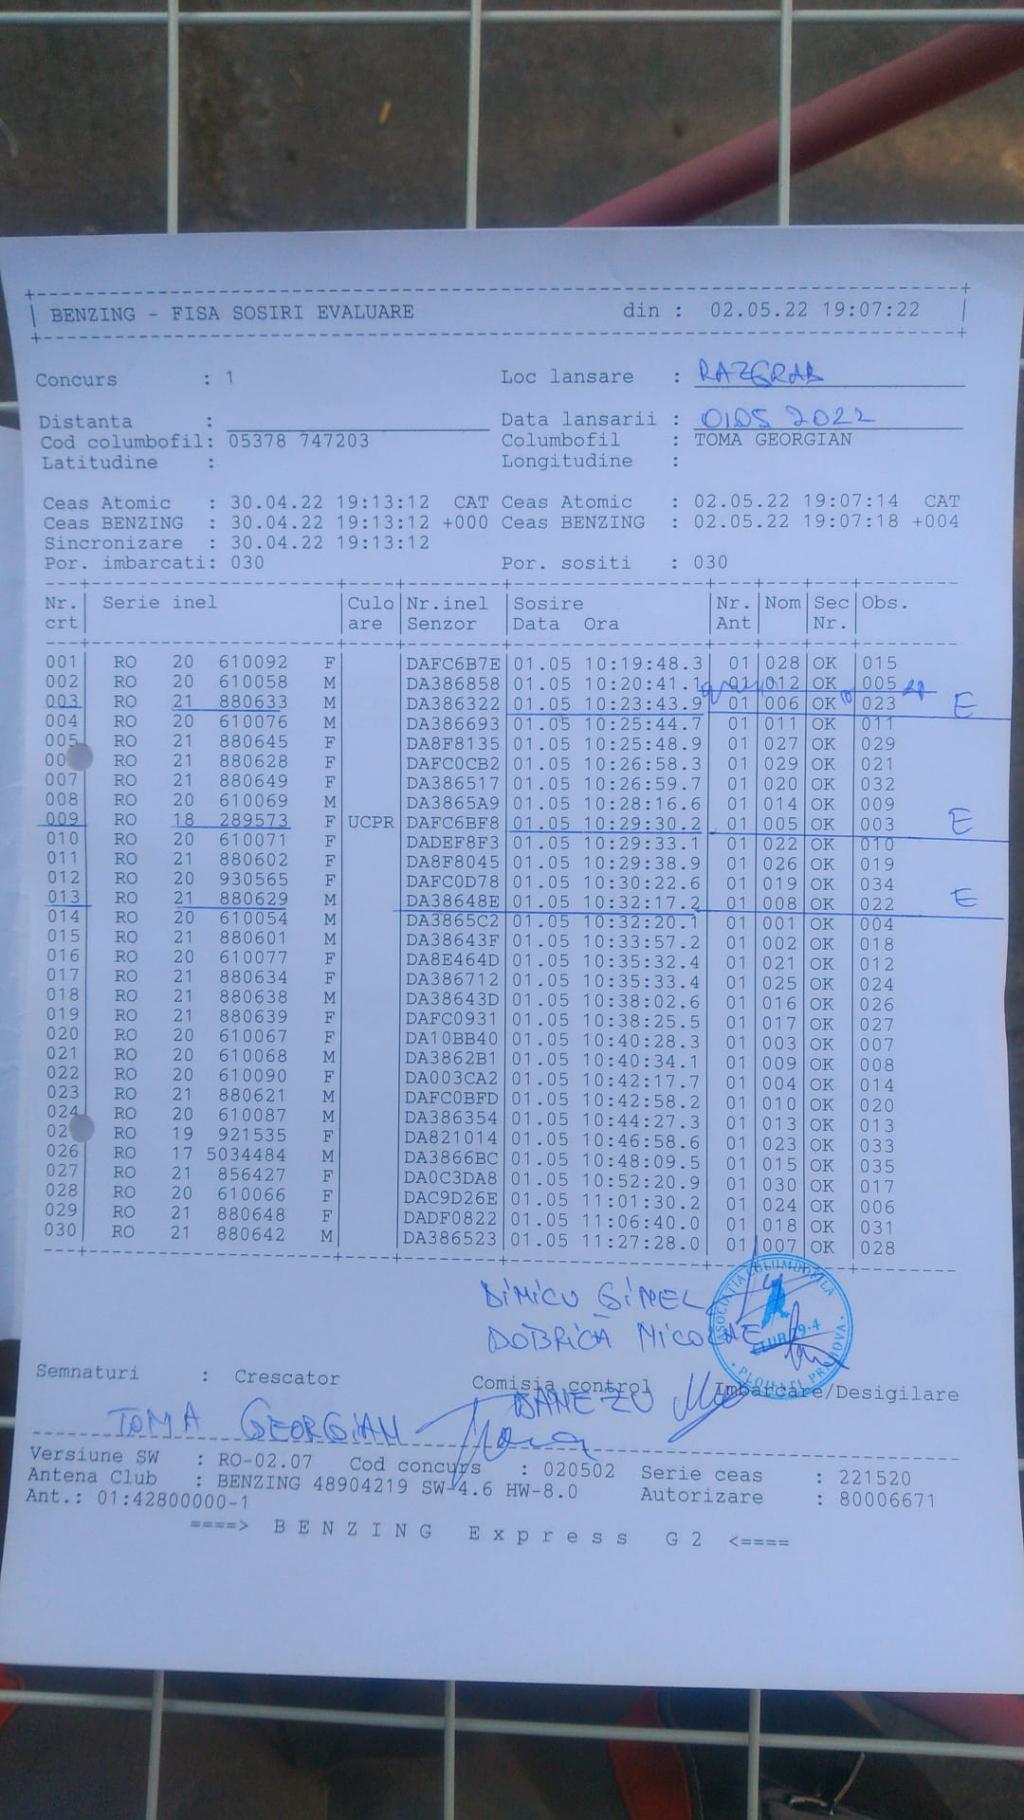 BENZING - FISA SOSIRI EVALUARE din : 02.05.22 19:07:22
Concurs : 1 Loc lansare : RAZGRAD
Distanta : Data lansarii : 0105 2022
Cod columbofil: 05378 747203 Columbofil : TOMA GEORGIAN
Latitudine : Longitudine :
Ceas Atomic : 30.04.22 19:13:12 CAT Ceas Atomic : 02.05.22 19:07:14 CAT
Ceas BENZING : 30.04.22 19:13:12 +000 Ceas BENZING : 02.05.22 19:07:18 +004
Sincronizare : 30.04.22 19:13:12
Por. imbarcati: 030 Por. sositi : 030
Nr. Serie inel Culo Nr.inel Sosire Nr. Nom Sec Obs.
crt are Senzor Data Ora Ant Nr.
001 RO 20 610092 F DAFC6B7E 01.05 10:19:48.3 01 028 OK 015
002 RO 20 610058 M DA386858 01.05 10:20:41.1 01 012 OK 005
003 RO 21 880633 M DA386322 01.05 10:23:43.9 01 006 OK 023 E
004 RO 20 610076 M DA386693 01.05 10:25:44.7 01 011 OK 011
005 RO 21 880645 F DA8F8135 01.05 10:25:48.9 01 027 OK 029
00 RO 21 880628 F DAFC0CB2 01.05 10:26:58.3 01 029 OK 021
007 RO 21 880649 F DA386517 01.05 10:26:59.7 01 020 OK 032
008 RO 20 610069 M DA3865A9 01.05 10:28:16.6 01 014 OK 009
009 RO 18 289573 F UCPR DAFC6BF8 01.05 10:29:30.2 01 005 OK 003 E
010 RO 20 610071 F DADEF8F3 01.05 10:29:33.1 01 022 OK 010
011 RO 21 880602 F DA8F8045 01.05 10:29:38.9 01 026 OK 019
012 RO 20 930565 F DAFC0D78 01.05 10:30:22.6 01 019 OK 034
013 RO 21 880629 M DA38648E 01.05 10:32:17.2 01 008 OK 022 E
014 RO 20 610054 M DA3865C2 01.05 10:32:20.1 01 001 OK 004
015 RO 21 880601 M DA38643F 01.05 10:33:57.2 01 002 OK 018
016 RO 20 610077 F DA8E464D 01.05 10:35:32.4 01 021 OK 012
017 RO 21 880634 F DA386712 01.05 10:35:33.4 01 025 OK 024
018 RO 21 880638 M DA38643D 01.05 10:38:02.6 01 016 OK 026
019 RO 21 880639 F DAFC0931 01.05 10:38:25.5 01 017 OK 027
020 RO 20 610067 F DA10BB40 01.05 10:40:28.3 01 003 OK 007
021 RO 20 610068 M DA3862B1 01.05 10:40:34.1 01 009 OK 008
022 RO 20 610090 F DA003CA2 01.05 10:42:17.7 01 004 OK 014
023 RO 21 880621 M DAFC0BFD 01.05 10:42:58.2 01 010 OK 020
024 RO 20 610087 M DA386354 01.05 10:44:27.3 01 013 OK 013
02 RO 19 921535 F DA821014 01.05 10:46:58.6 01 023 OK 033
026 RO 17 5034484 M DA3866BC 01.05 10:48:09.5 01 015 OK 035
027 RO 21 856427 F DA0C3DA8 01.05 10:52:20.9 01 030 OK 017
028 RO 20 610066 F DAC9D26E 01.05 11:01:30.2 01 024 OK 006
029 RO 21 880648 F DADF0822 01.05 11:06:40.0 01 018 OK 031
030 RO 21 880642 M DA386523 01.05 11:27:28.0 01 007 OK 028
DIMICU GINEL
DOBRICĂ NICOLAE
Semnaturi : Crescator Comisia control Imbarcare/Desigilare
TOMA GEORGIAN
Versiune SW : RO-02.07 Cod concurs : 020502 Serie ceas : 221520
Antena Club : BENZING 48904219 SW-4.6 HW-8.0 Autorizare : 80006671
Ant.: 01:42800000-1
====> BENZING Express G2 <====